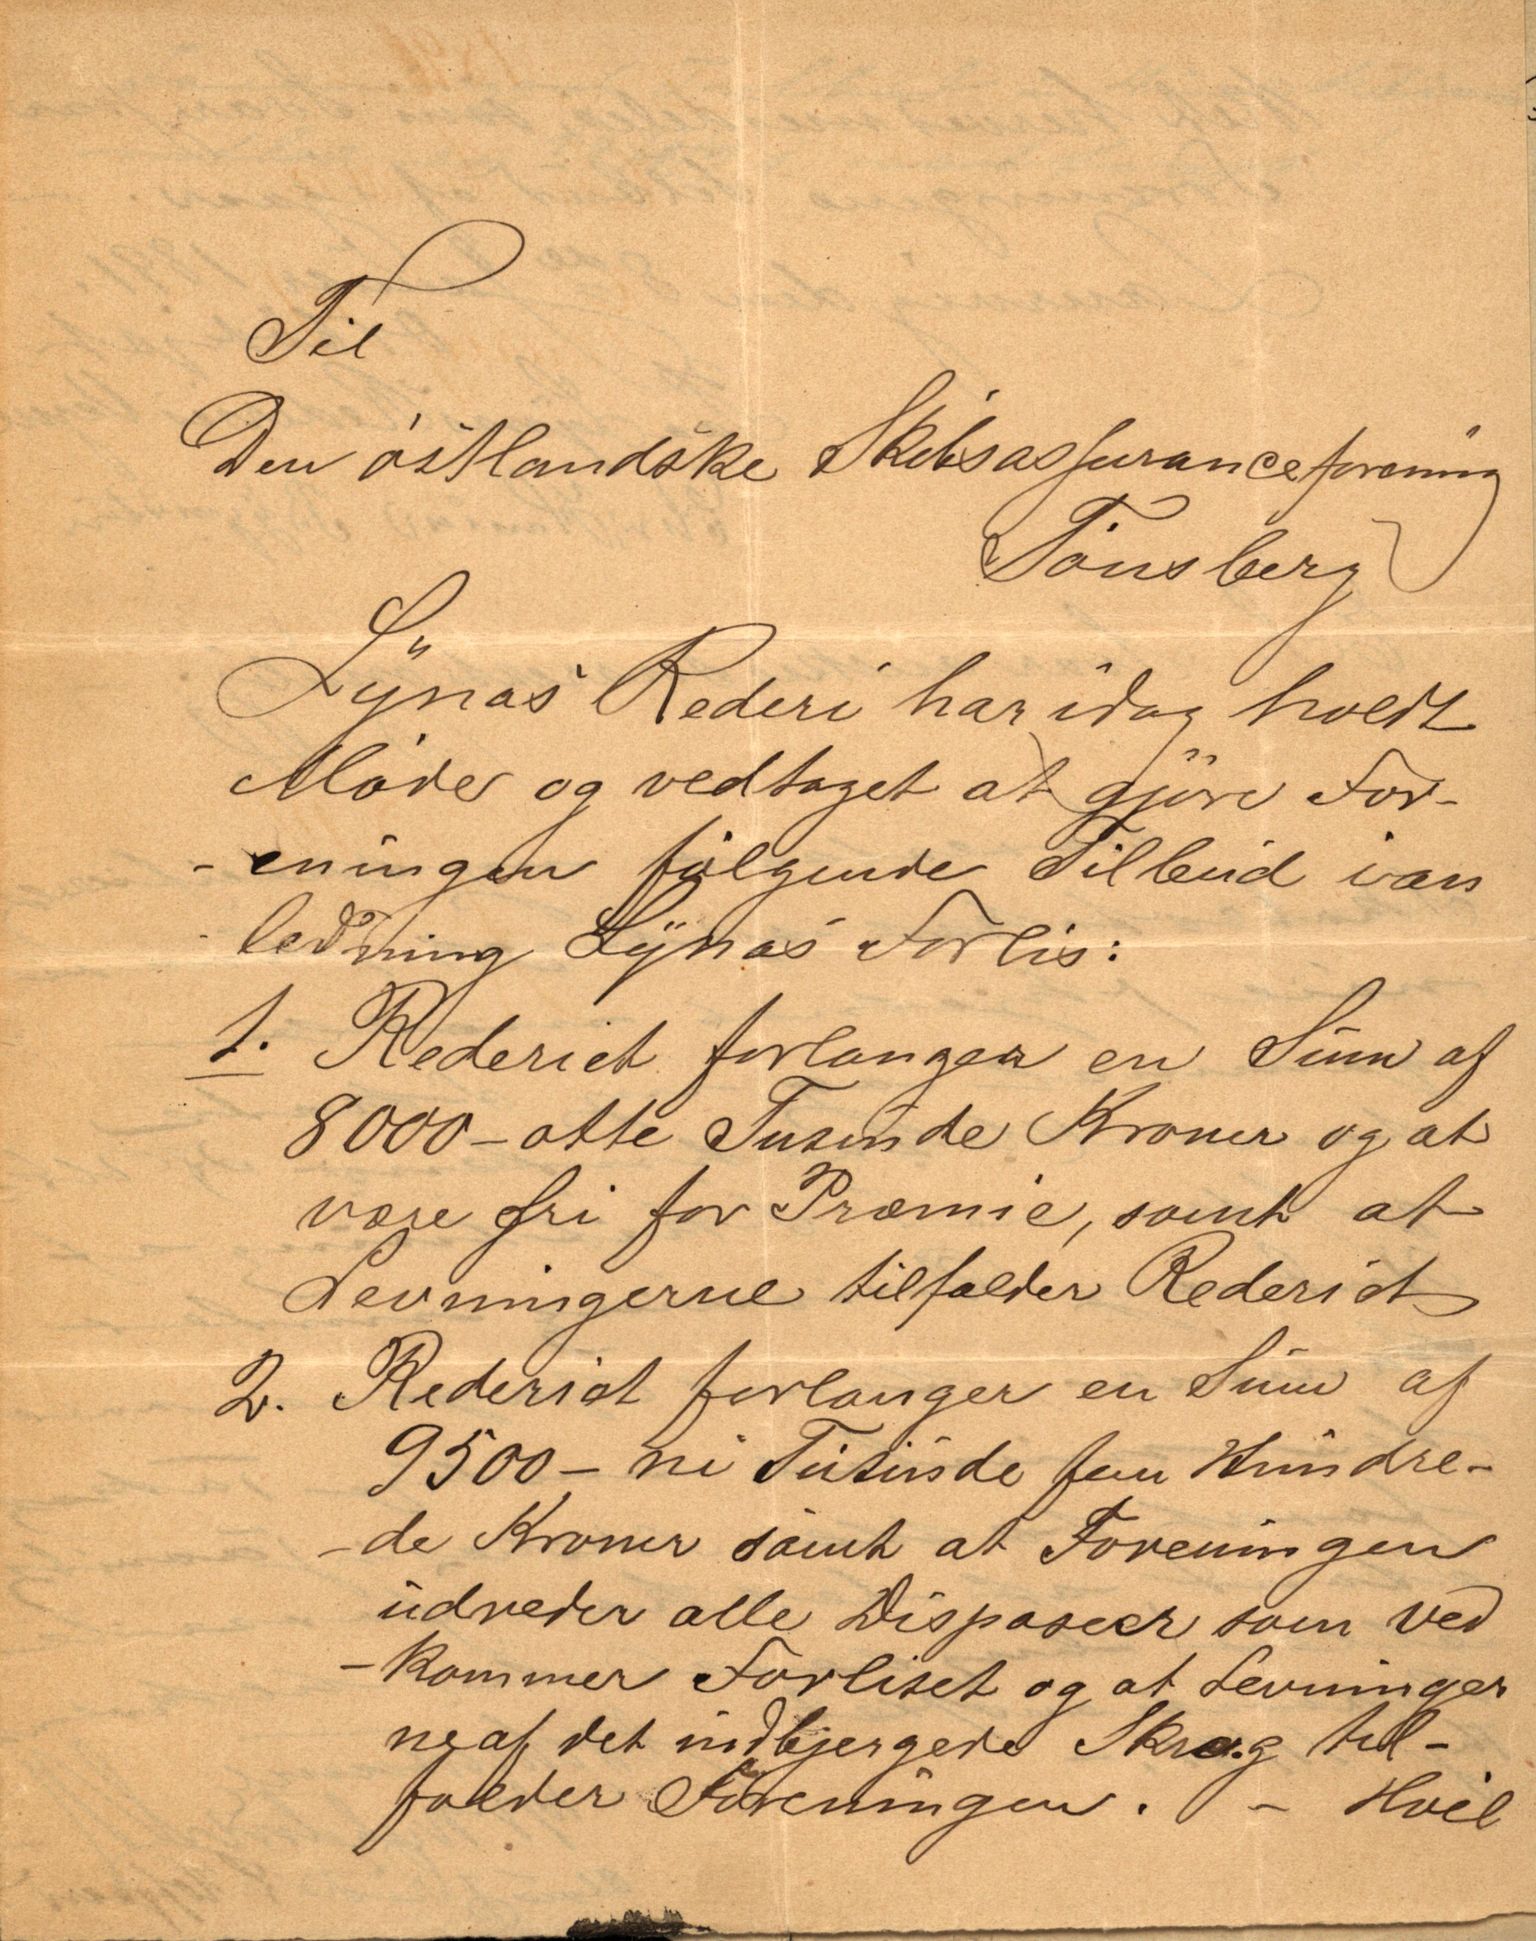 Til
Den østlandske Skibsassuranceforening
Tønsberg
Lÿnas Rederi har idag holdt
Møde og vedtaget at gjøre For-
-eningen følgende Tilbud i an
ledning Lÿnas Forlis:
1. Rederiet forlanger en Sum af
8000 - otte Tusinde Kroner og at
være fri for Præmie, samt at
Levningerne tilfalder Rederiet
2. Rederiet forlanger en Sum af
9500 - ni Tusinde fem Hundre-
-de Kroner samt at Foreningen
udreder alle Disposeer som ved
-kommer Forliset og at Levninger
ne af det indbjergede Skrog til-
falder Foreningen. - Hvil